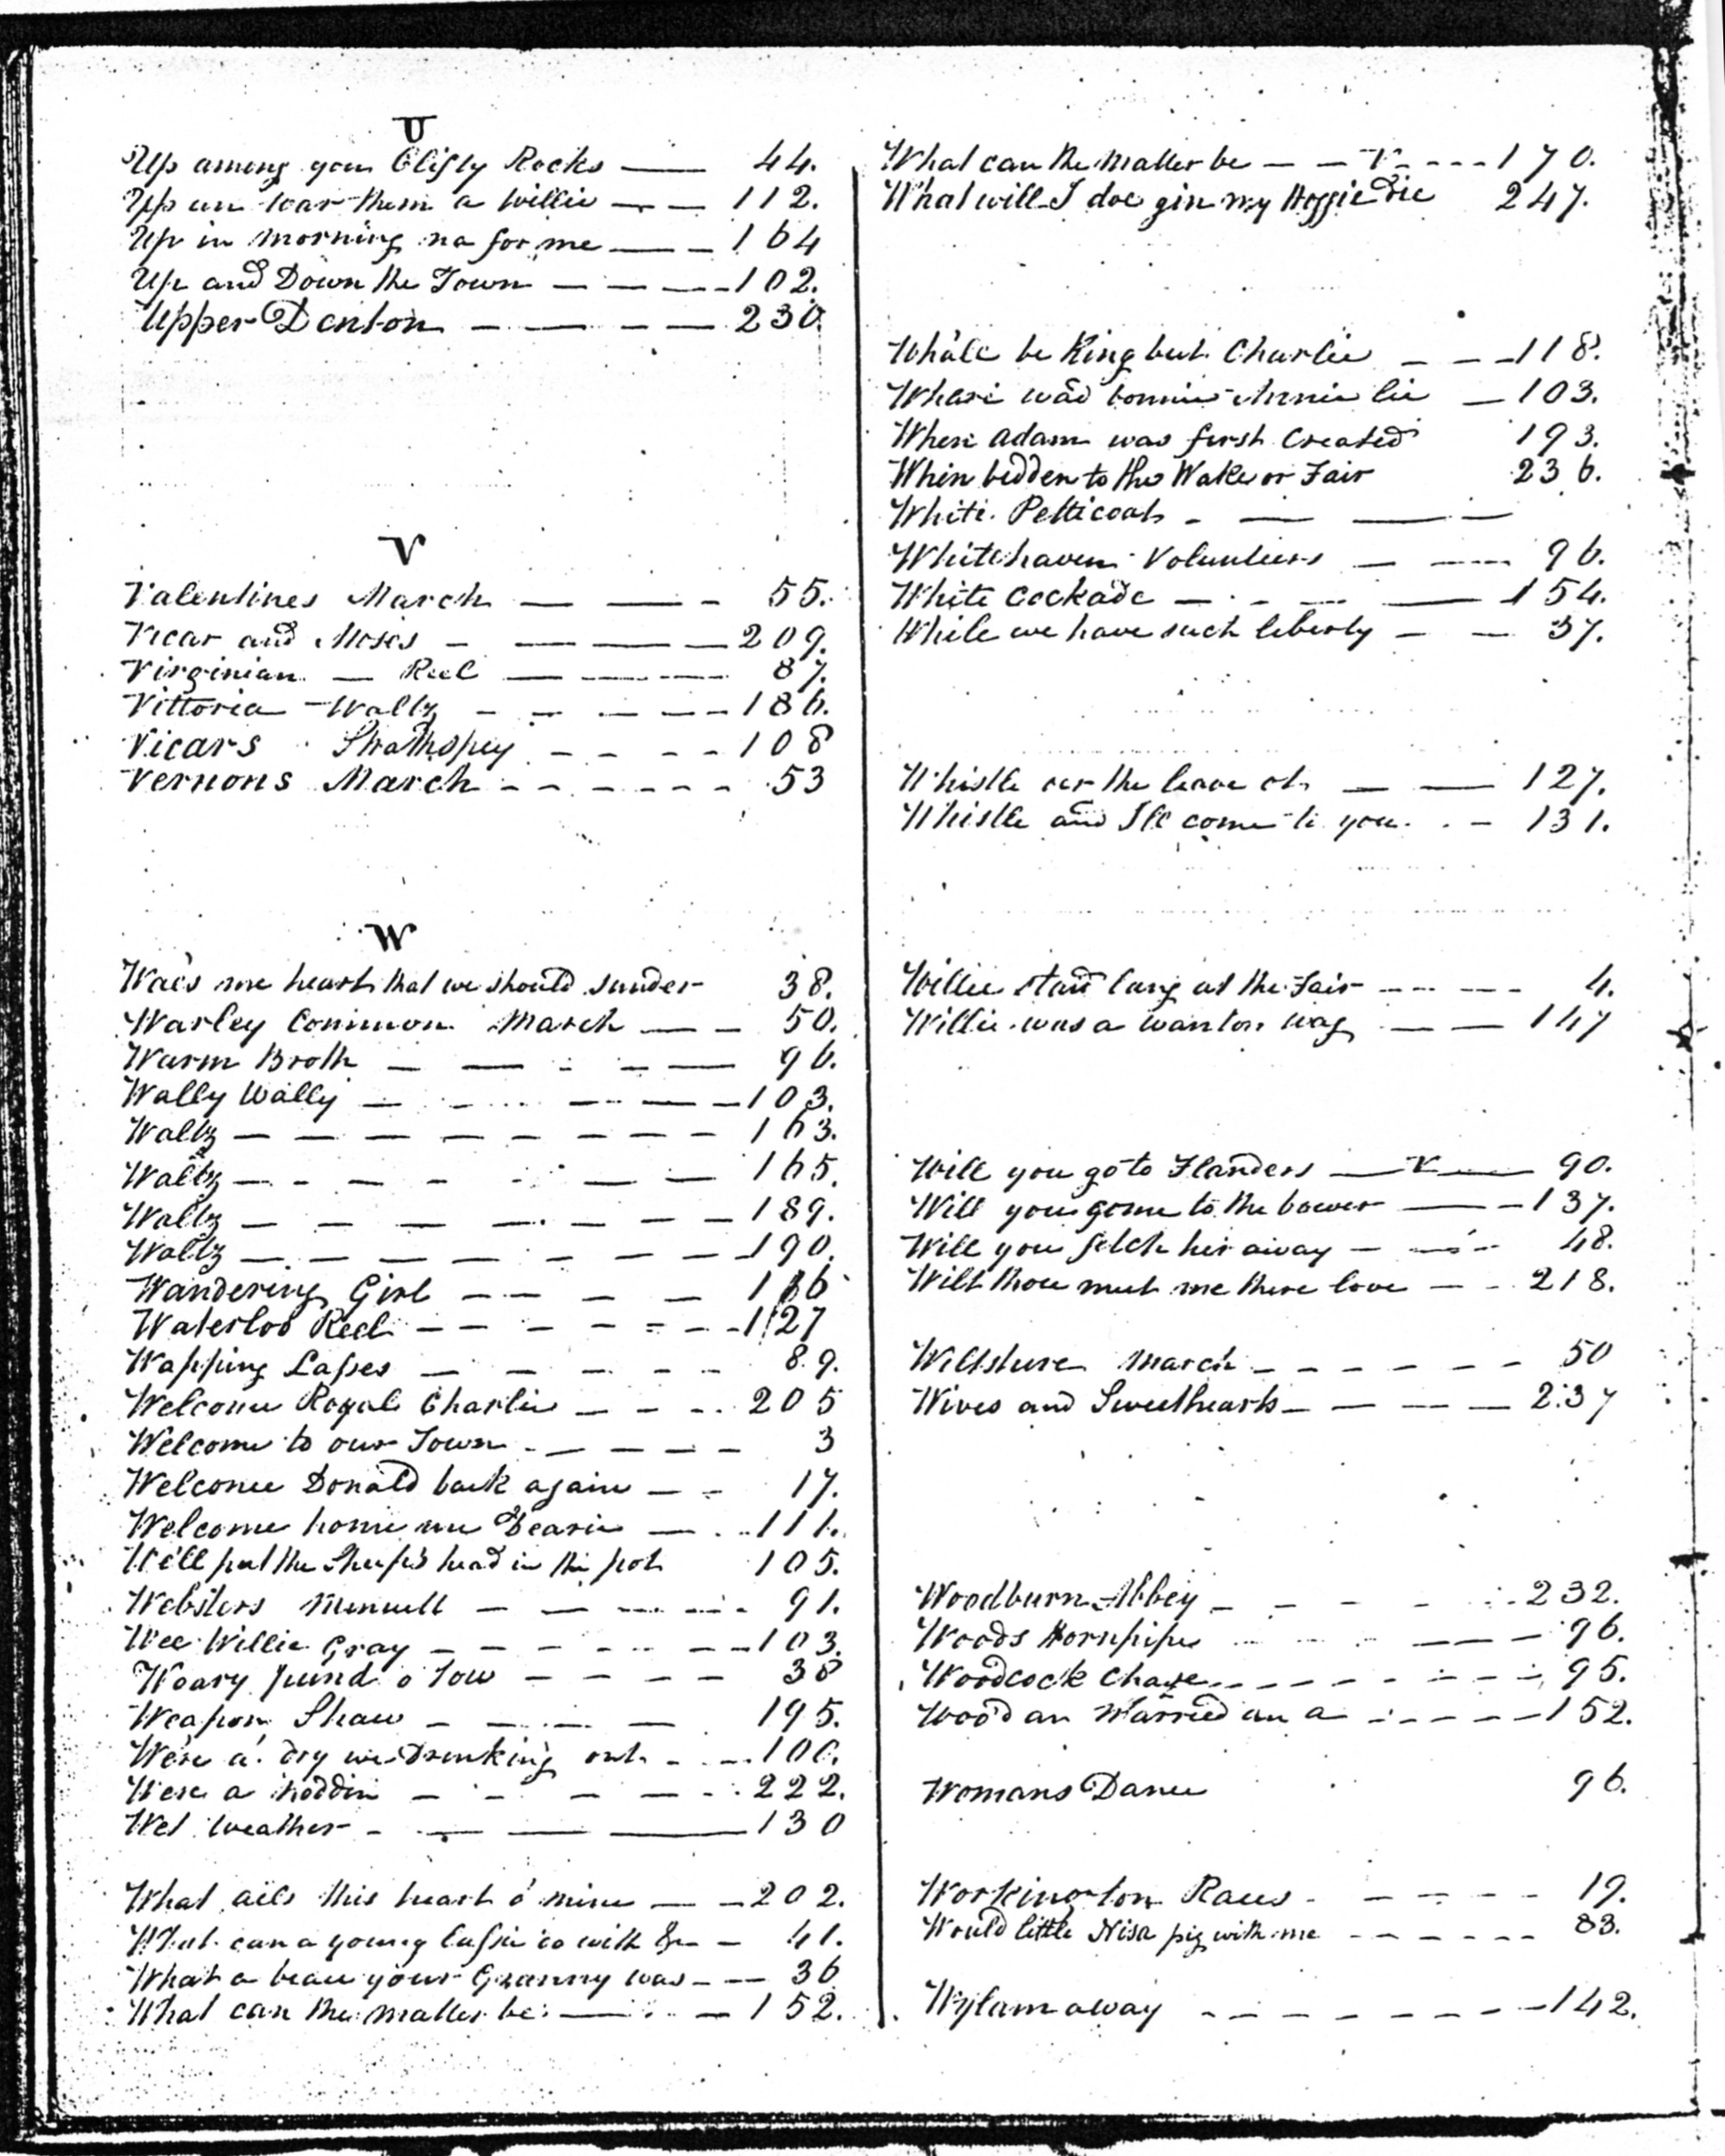 U
Up among yon Clifty Rocks 44.
Up an war them a Willie 112.
Up in morning na for me 164
Up and Down the Town 102.
Upper Denton 230.
V
Valentines March 55.
Vicar and Moses 209.
Virginian Reel 87.
Vittoria Waltz 186.
Vicars Strathspey 108
Vernons March 53
W
Waes me heart that we should sunder 38.
Warley Common March 50.
Warm Broth 96.
Wally Wally 103.
Waltz 163.
Waltz 165.
Waltz 189.
Waltz 190.
Wandering Girl
Waterloo Reel 127
Wapping Lasses 89.
Welcome Royal Charlie 205
Welcome to our Town 3
Welcome Donald back again 17.
Welcome home me Dearie 111.
We'll put the Sheep's head in the pot 105.
Websters Menuett 91.
Wee Willie Gray 103.
Weary pund o Tow 38
Weapon Shaw 195.
We're a' dry wi Drinking ont 100.
Were a noddin 222.
Wet weather 130
What ails this heart o' mine 202.
What can a young Lassie do with &c 41.
What a beau your Granny was 36
What can the matter be 152.
What can the Matter be V 170.
What will I doe gin my Hoggie Die 247.
Whāle be King but Charlie 118.
Whare wad bonnie Annie lie 103.
When Adam was first Created 193.
When bidden to the Wake or Fair 236.
White Petticoat
Whitehaven Volunteers 96.
White Cockade 154.
While we have such liberty 37.
Whistle oer the leave ot 127.
Whistle and Ill come to you 131.
Willie staid lang at the Fair 4.
Willie was a wanton wag 147
Will you go to Flanders V 90.
Will you come to the bower 137.
Will you fetch her away 48.
Wilt thou meet me there love 218.
Wiltshire March 50
Wives and Sweethearts 237
Woodburn Abbey 232.
Woods Hornpipe 96.
Woodcock Chase 95.
Woo'd an Married an a 152.
Womans Dance 96.
Workington Races 19.
Would little Nisa pig with me 83.
Wylam away 142.